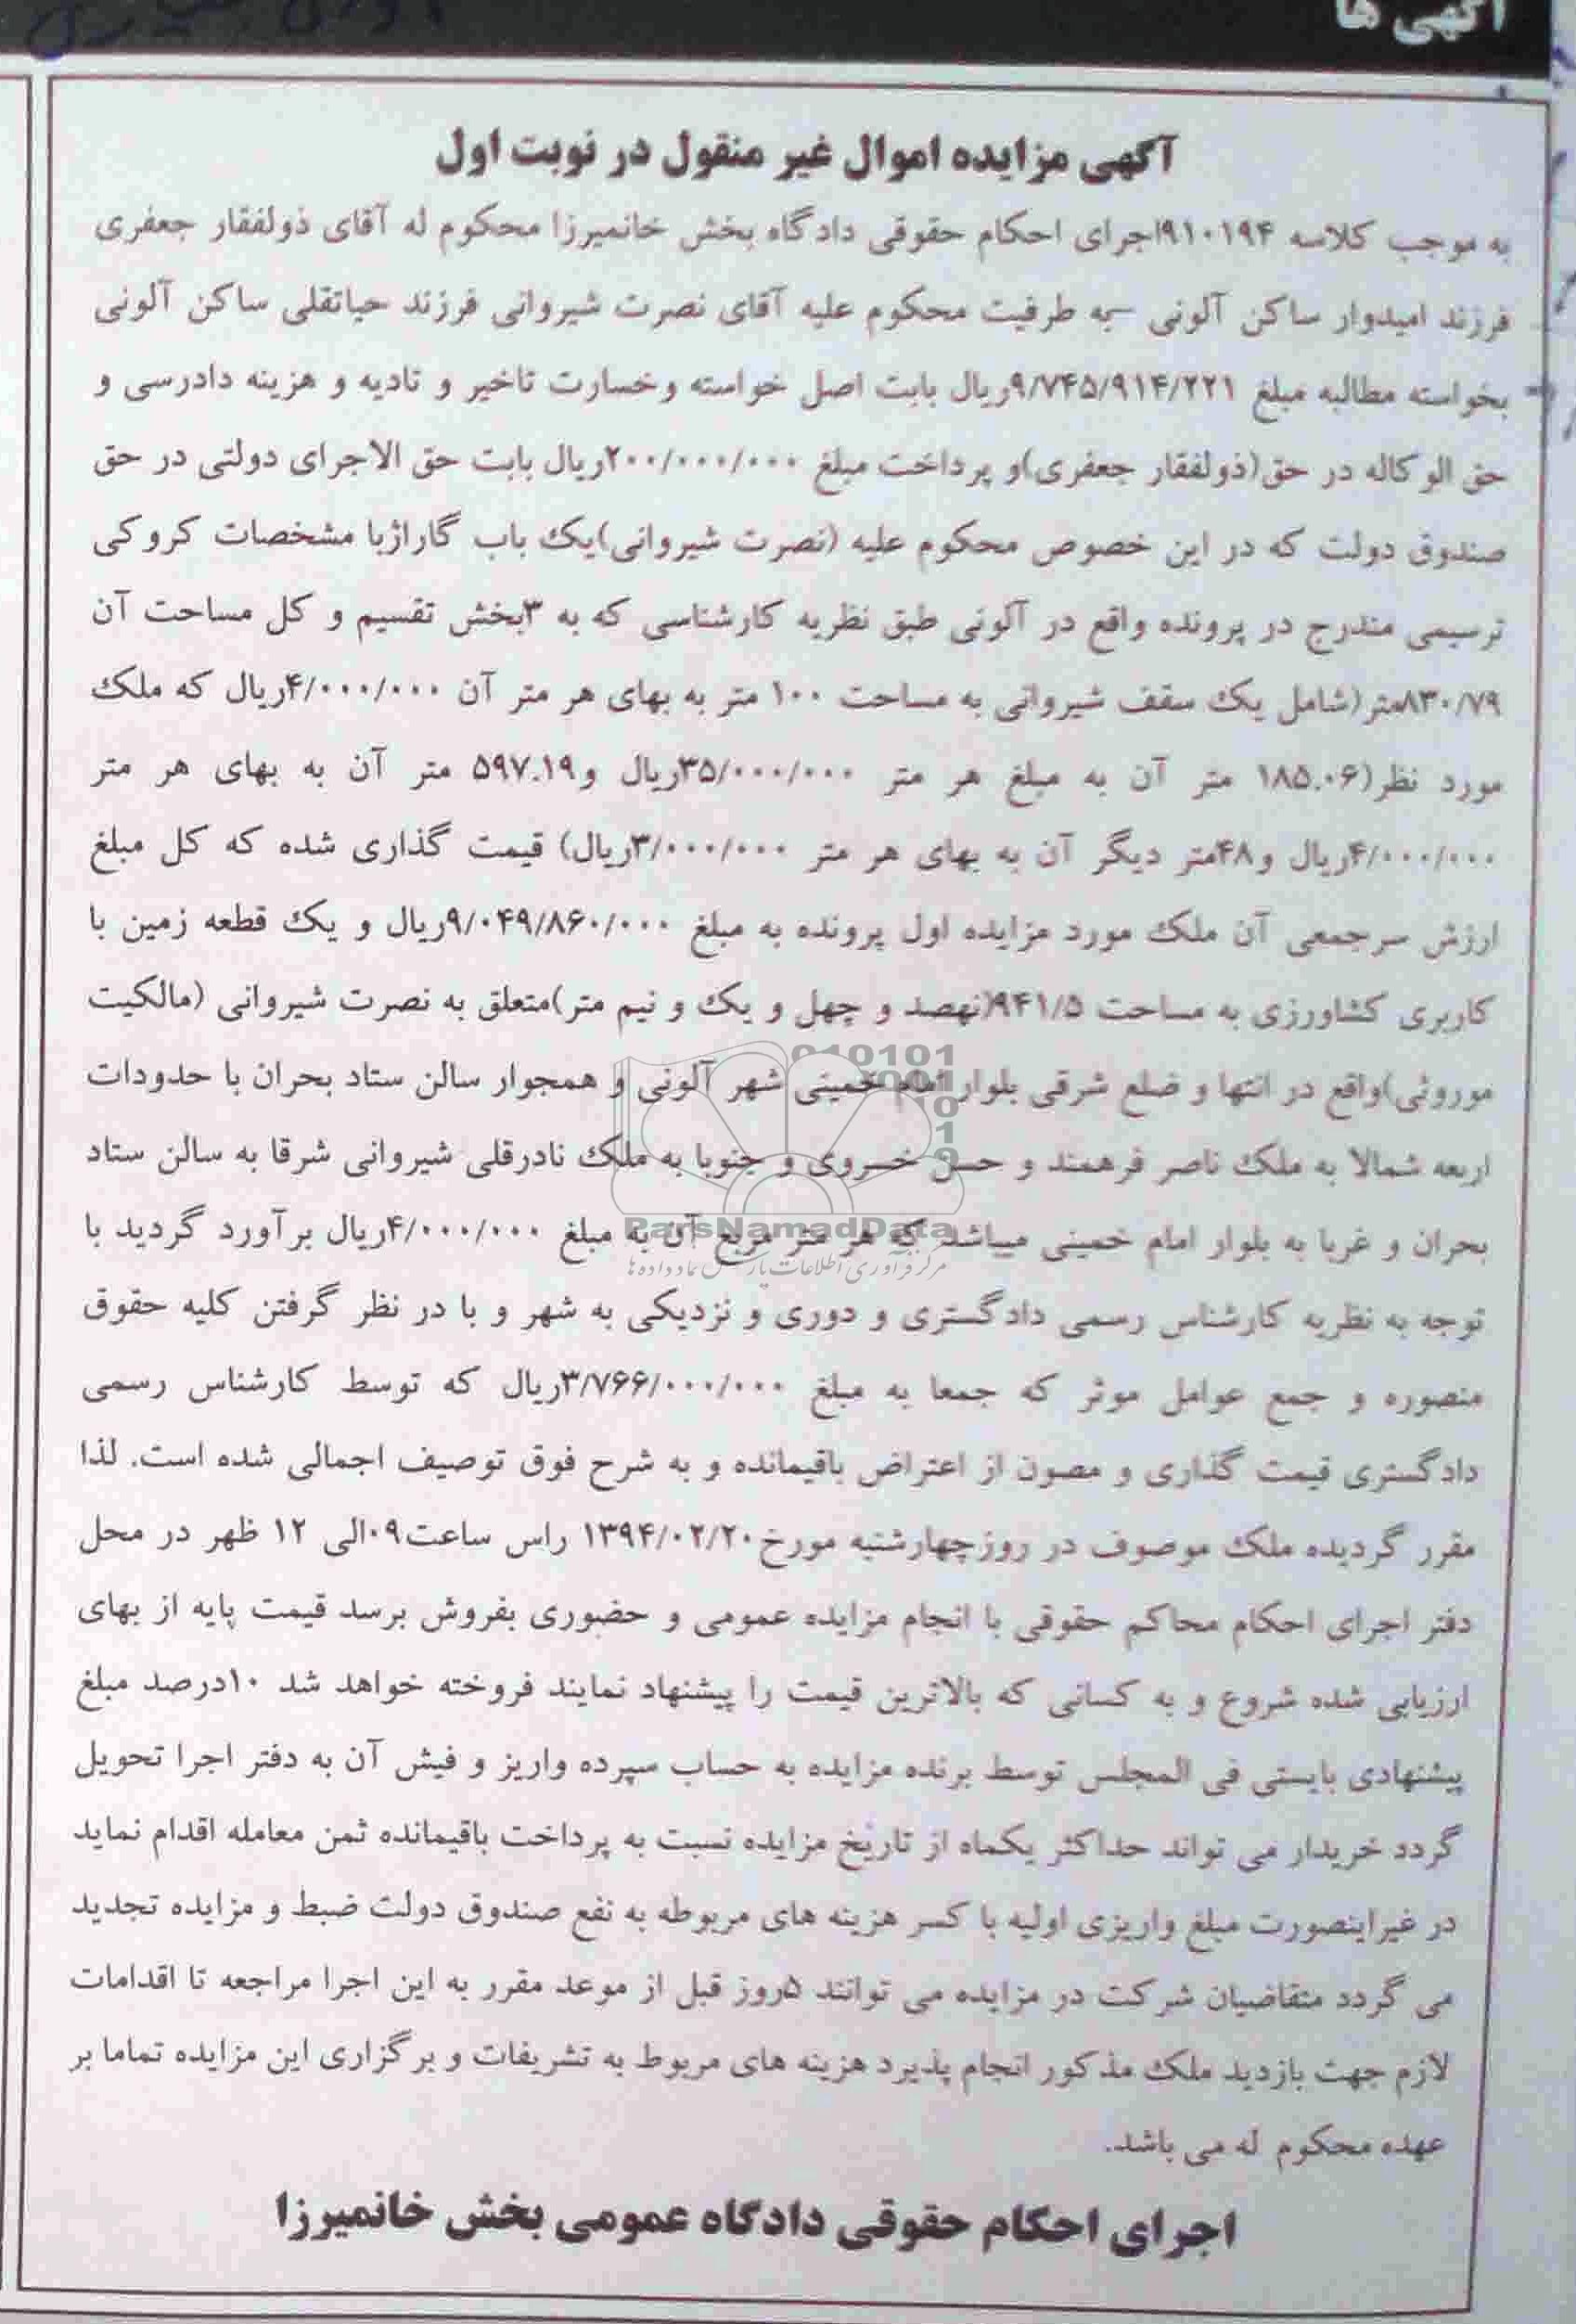 آگهی ها
آگهی مزایده اموال غیر منقول در نوبت اول
به موجب کلاسه ۹۱۰۱۹۴اجرای احکام حقوقی دادگاه بخش خانمیرزا محکوم له آقای ذولفقار جعفری
فرزند امیدوار ساکن آلونی –به طرفیت محکوم علیه آقای نصرت شیروانی فرزند حیاتقلی ساکن آلونی
بخواسته مطالبه مبلغ ۹/۷۴۵/۹۱۴/۲۲۱ریال بابت اصل خواسته وخسارت تاخیر و تادیه و هزینه دادرسی و
حق الوکاله در حق(ذولفقار جعفری)و پرداخت مبلغ ۲۰۰/۰۰۰/۰۰۰ریال بابت حق الاجرای دولتی در حق
صندوق دولت که در این خصوص محکوم علیه (نصرت شیروانی)یک باب گاراژبا مشخصات کروکی
ترسیمی مندرج در پرونده واقع در آلونی طبق نظریه کارشناسی که به ۳بخش تقسیم و کل مساحت آن
۸۳۰/۷۹متر(شامل یک سقف شیروانی به مساحت ۱۰۰ متر به بهای هر متر آن ۴/۰۰۰/۰۰۰ریال که ملک
مورد نظر(۱۸۵.۰۶ متر آن به مبلغ هر متر ۳۵/۰۰۰/۰۰۰ریال و۵۹۷.۱۹ متر آن به بهای هر متر
۴/۰۰۰/۰۰۰ریال و۴۸متر دیگر آن به بهای هر متر ۳/۰۰۰/۰۰۰ریال) قیمت گذاری شده که کل مبلغ
ارزش سرجمعی آن ملک مورد مزایده اول پرونده به مبلغ ۹/۰۴۹/۸۶۰/۰۰۰ریال و یک قطعه زمین با
کاربری کشاورزی به مساحت ۹۴۱/۵(نهصد و چهل و یک و نیم متر)متعلق به نصرت شیروانی (مالکیت
موروثی)واقع در انتها و ضلع شرقی بلوار امام خمینی شهر آلونی و همجوار سالن ستاد بحران با حدودات
اربعه شمالا به ملک ناصر فرهمند و حسن خسروی و جنوبا به ملک نادرقلی شیروانی شرقا به سالن ستاد
بحران و غربا به بلوار امام خمینی میباشد که هر متر مربع آن به مبلغ ۴/۰۰۰/۰۰۰ریال برآورد گردید با
توجه به نظریه کارشناس رسمی دادگستری و دوری و نزدیکی به شهر و با در نظر گرفتن کلیه حقوق
منصوره و جمع عوامل موثر که جمعا به مبلغ ۳/۷۶۶/۰۰۰/۰۰۰ریال که توسط کارشناس رسمی
دادگستری قیمت گذاری و مصون از اعتراض باقیمانده و به شرح فوق توصیف اجمالی شده است. لذا
مقرر گردیده ملک موصوف در روزچهارشنبه مورخ۱۳۹۴/۰۲/۲۰ راس ساعت۰۹الی ۱۲ ظهر در محل
دفتر اجرای احکام محاکم حقوقی با انجام مزایده عمومی و حضوری بفروش برسد قیمت پایه از بهای
ارزیابی شده شروع و به کسانی که بالاترین قیمت را پیشنهاد نمایند فروخته خواهد شد ۱۰درصد مبلغ
پیشنهادی بایستی فی المجلس توسط برنده مزایده به حساب سپرده واریز و فیش آن به دفتر اجرا تحویل
گردد خریدار می تواند حداکثر یکماه از تاریخ مزایده نسبت به پرداخت باقیمانده ثمن معامله اقدام نماید
در غیراینصورت مبلغ واریزی اولیه با کسر هزینه های مربوطه به نفع صندوق دولت ضبط و مزایده تجدید
می گردد متقاضیان شرکت در مزایده می توانند ۵روز قبل از موعد مقرر به این اجرا مراجعه تا اقدامات
لازم جهت بازدید ملک مذکور انجام پذیرد هزینه های مربوط به تشریفات و برگزاری این مزایده تماما بر
عهده محکوم له می باشد.
اجرای احکام حقوقی دادگاه عمومی بخش خانمیرزا
ParsNamadData
مرکز فرآوری اطلاعات پارس نماد داده ها